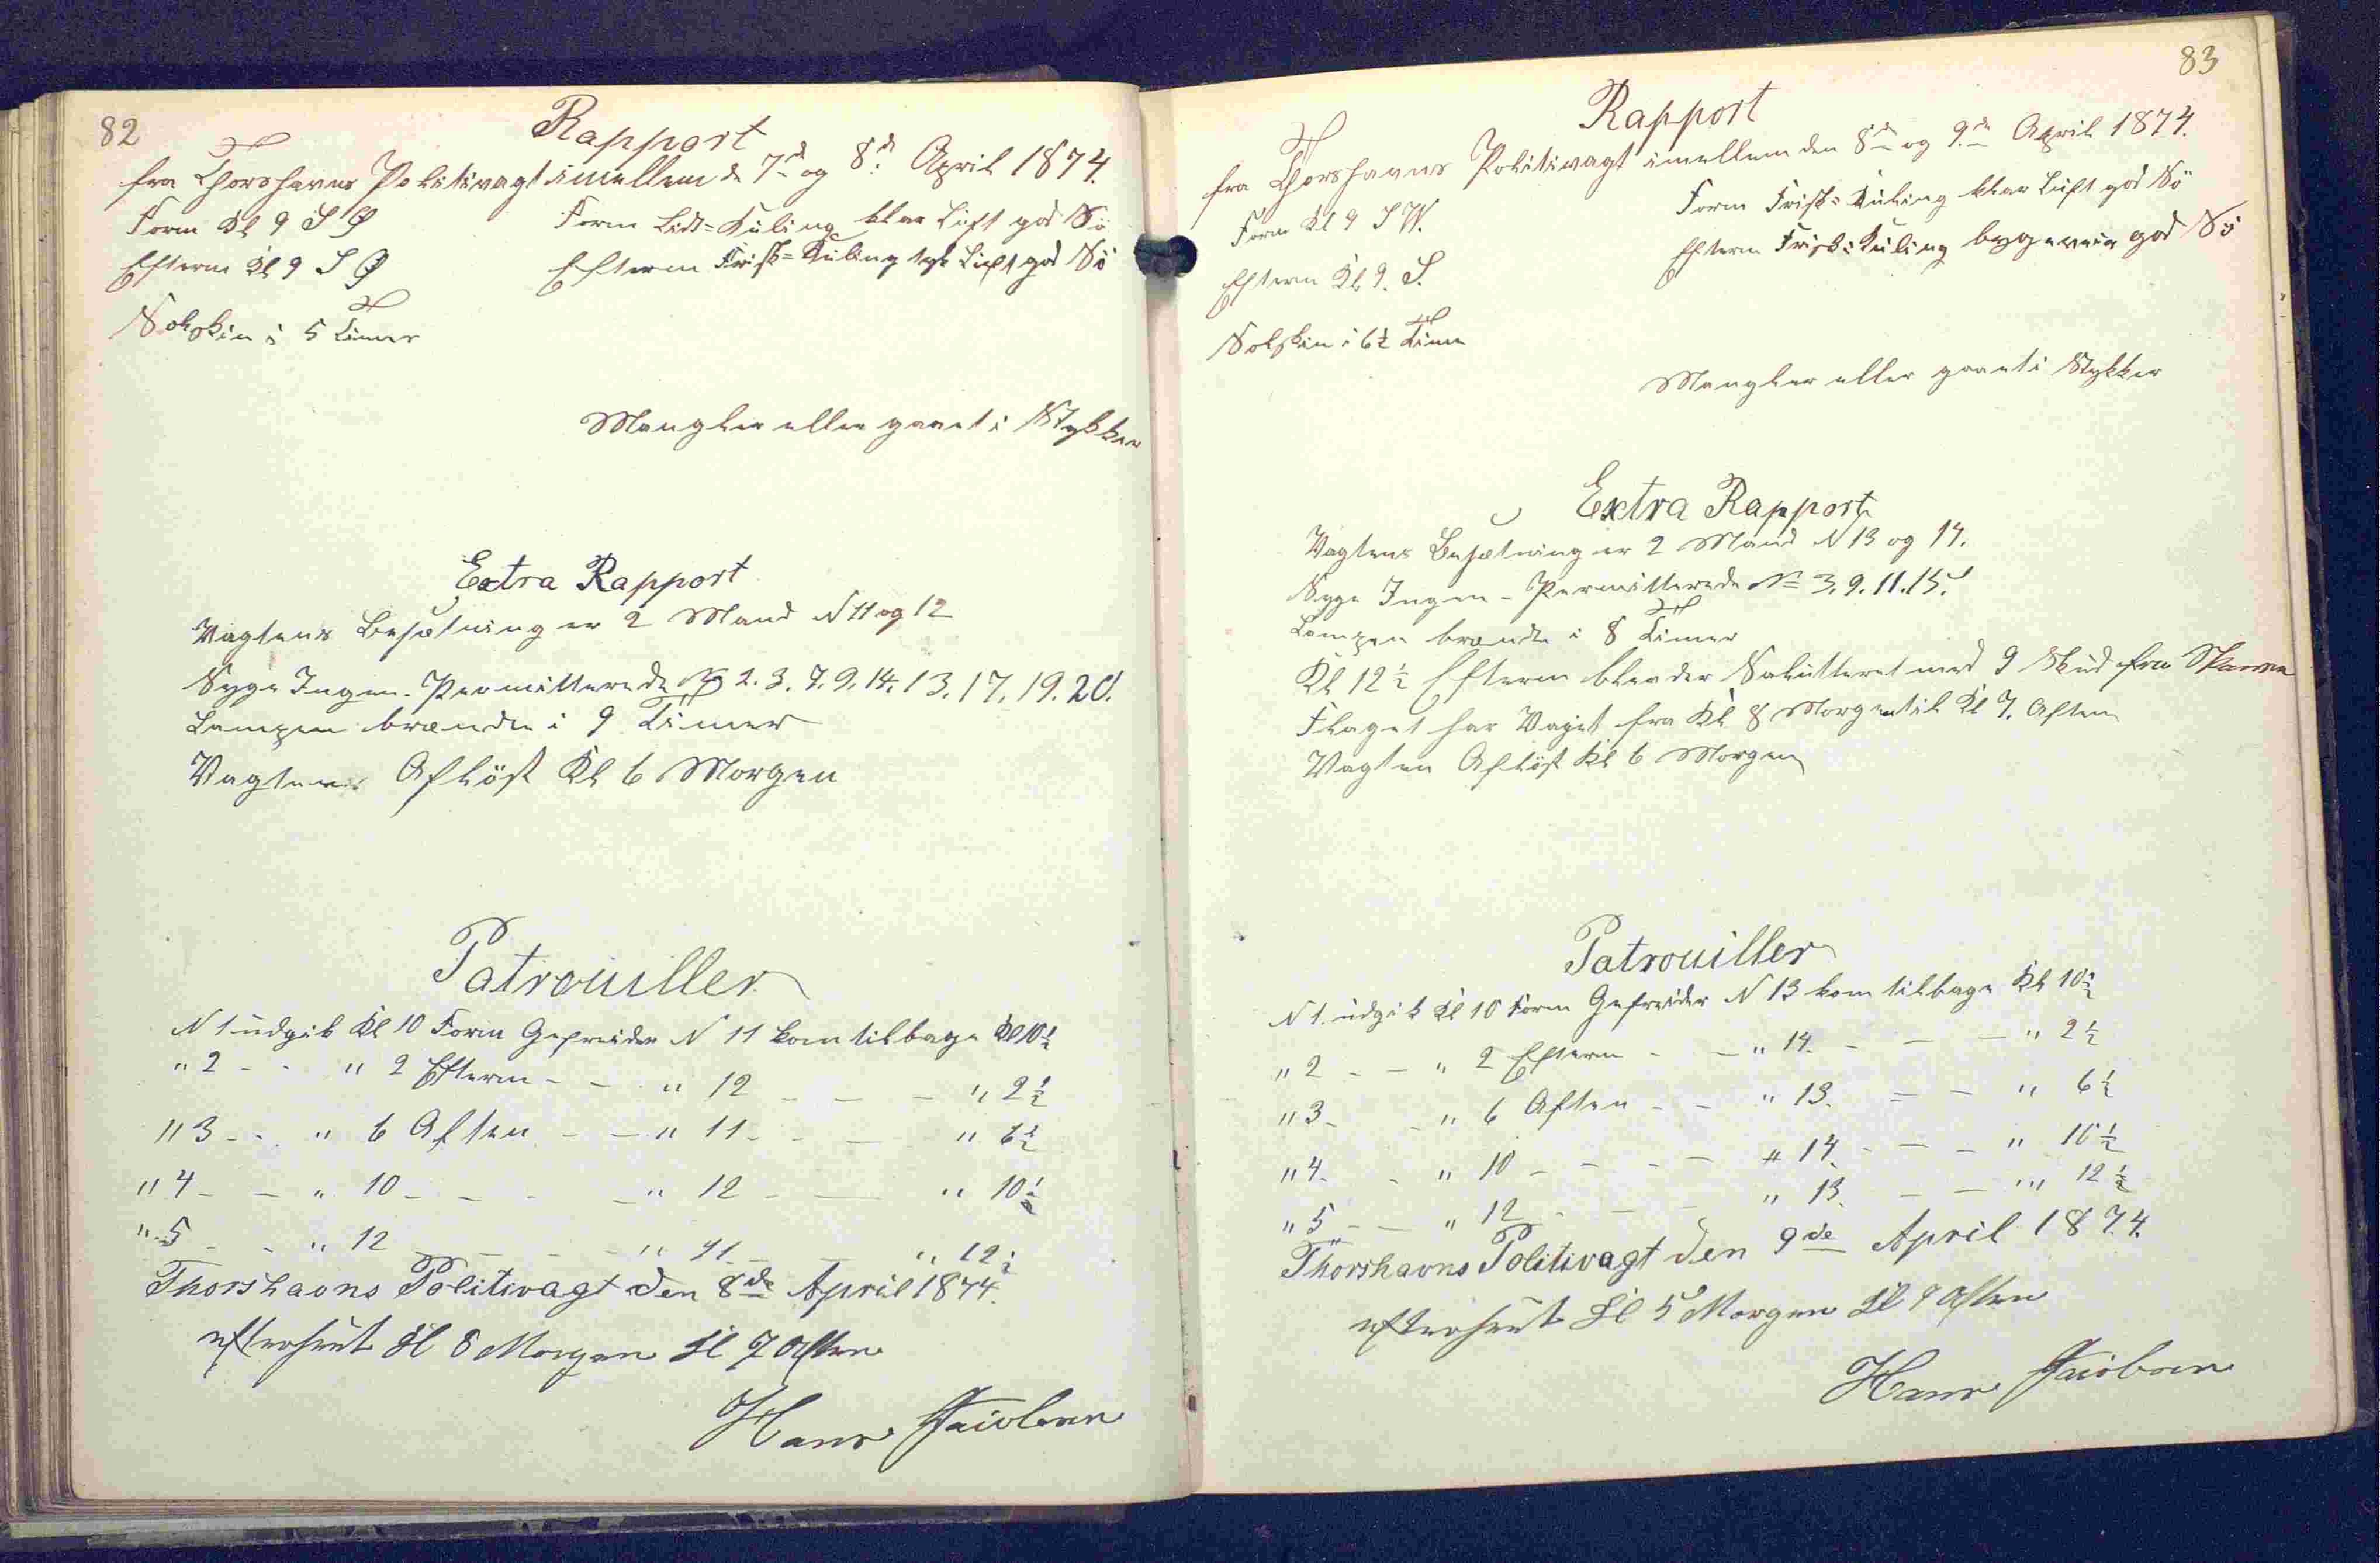 82
Rapport
fra Thorshavns Politivagt imellem d. 7d og 8d April 1874.
Form Kl 9 S Ø
Form Lidt=Kuling klar Luft god Sö
Efterm Kl 9 S Ø
Efterm Frisk=Kuling tyk Luft god Sö
Solskin i 5 Timer
Mangler eller gaaet i Stykker
Extra Rapport
Vagtens Besætning er 2 Mand N 11 og 12
Syge Ingen. Permitterede No 2. 3. 7. 9. 14. 13. 17. 19. 20.
Lampen brændte i 9 Timer
Vagten Aflöst Kl 6 Morgen
Patrouiller
N 1 udgik Kl 10 Form Gefreider N 11 kom tilbage Kl 10½
" 2 - - " 2 Efterm - - " 12 - - - " 2½
" 3 - - " 6 Aften - - " 11 - - - " 6½
" 4 - - " 10 - - - - " 12 - - " 10½
" 5 - - " 12 - - - - " 11 - - " 12½
Thorshavns Politivagt den 8de April 1874.
efterseet Kl 8 Morgen Kl 7 Aften
Hans Jacobsen
83
Rapport
fra Thorshavns Politivagt imellem den 8de og 9de April 1874.
Form Kl 9 S W.
Form Frisk=Kuling klar Luft god Sö
Efterm Kl 9. S.
Efterm Frisk=Kuling god Sö
Solskin i 6½ Time
Mangler eller gaaet i Stykker
Extra Rapport
Vagtens Besætning er 2 Mand N 13 og 14.
Syge Ingen - Permitterede No 3. 9. 11. 15.
Lampen brændte i 8 Timer
Kl 12½ Efterm blev der Salutteret med 9 Skud fra Skansen
Flaget har Vajet fra Kl 8 Morgen til Kl 7. Aften
Vagten Aflöst Kl 6 Morgen
Patrouiller
N 1. udgik Kl 10 Form Gefreider N 13 kom tilbage Kl 10½
" 2 - - " 2 Efterm - - " 14. - - - " 2½
" 3 - - " 6 Aften - - " 13. - - " 6½
" 4. - " 10 - - - - " 14. - - - " 10½
" 5 - - " 12 - - - " 13. - - " 12½
Thorshavns Politivagt den 9de April 1874.
efterseet Kl 5 Morgen Kl 9 Aften
Hans Jacobsen